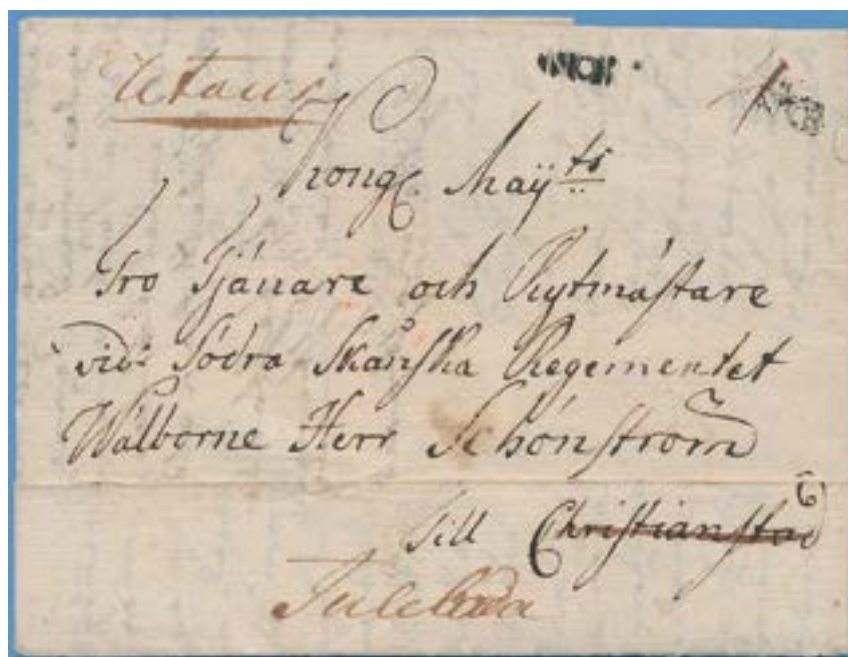 Kongl. Maÿts
Tro Tjänare och Rytmästare
vid: Södra Skånska Regementet
Wälborne Herr Schönström
Till Christianstad